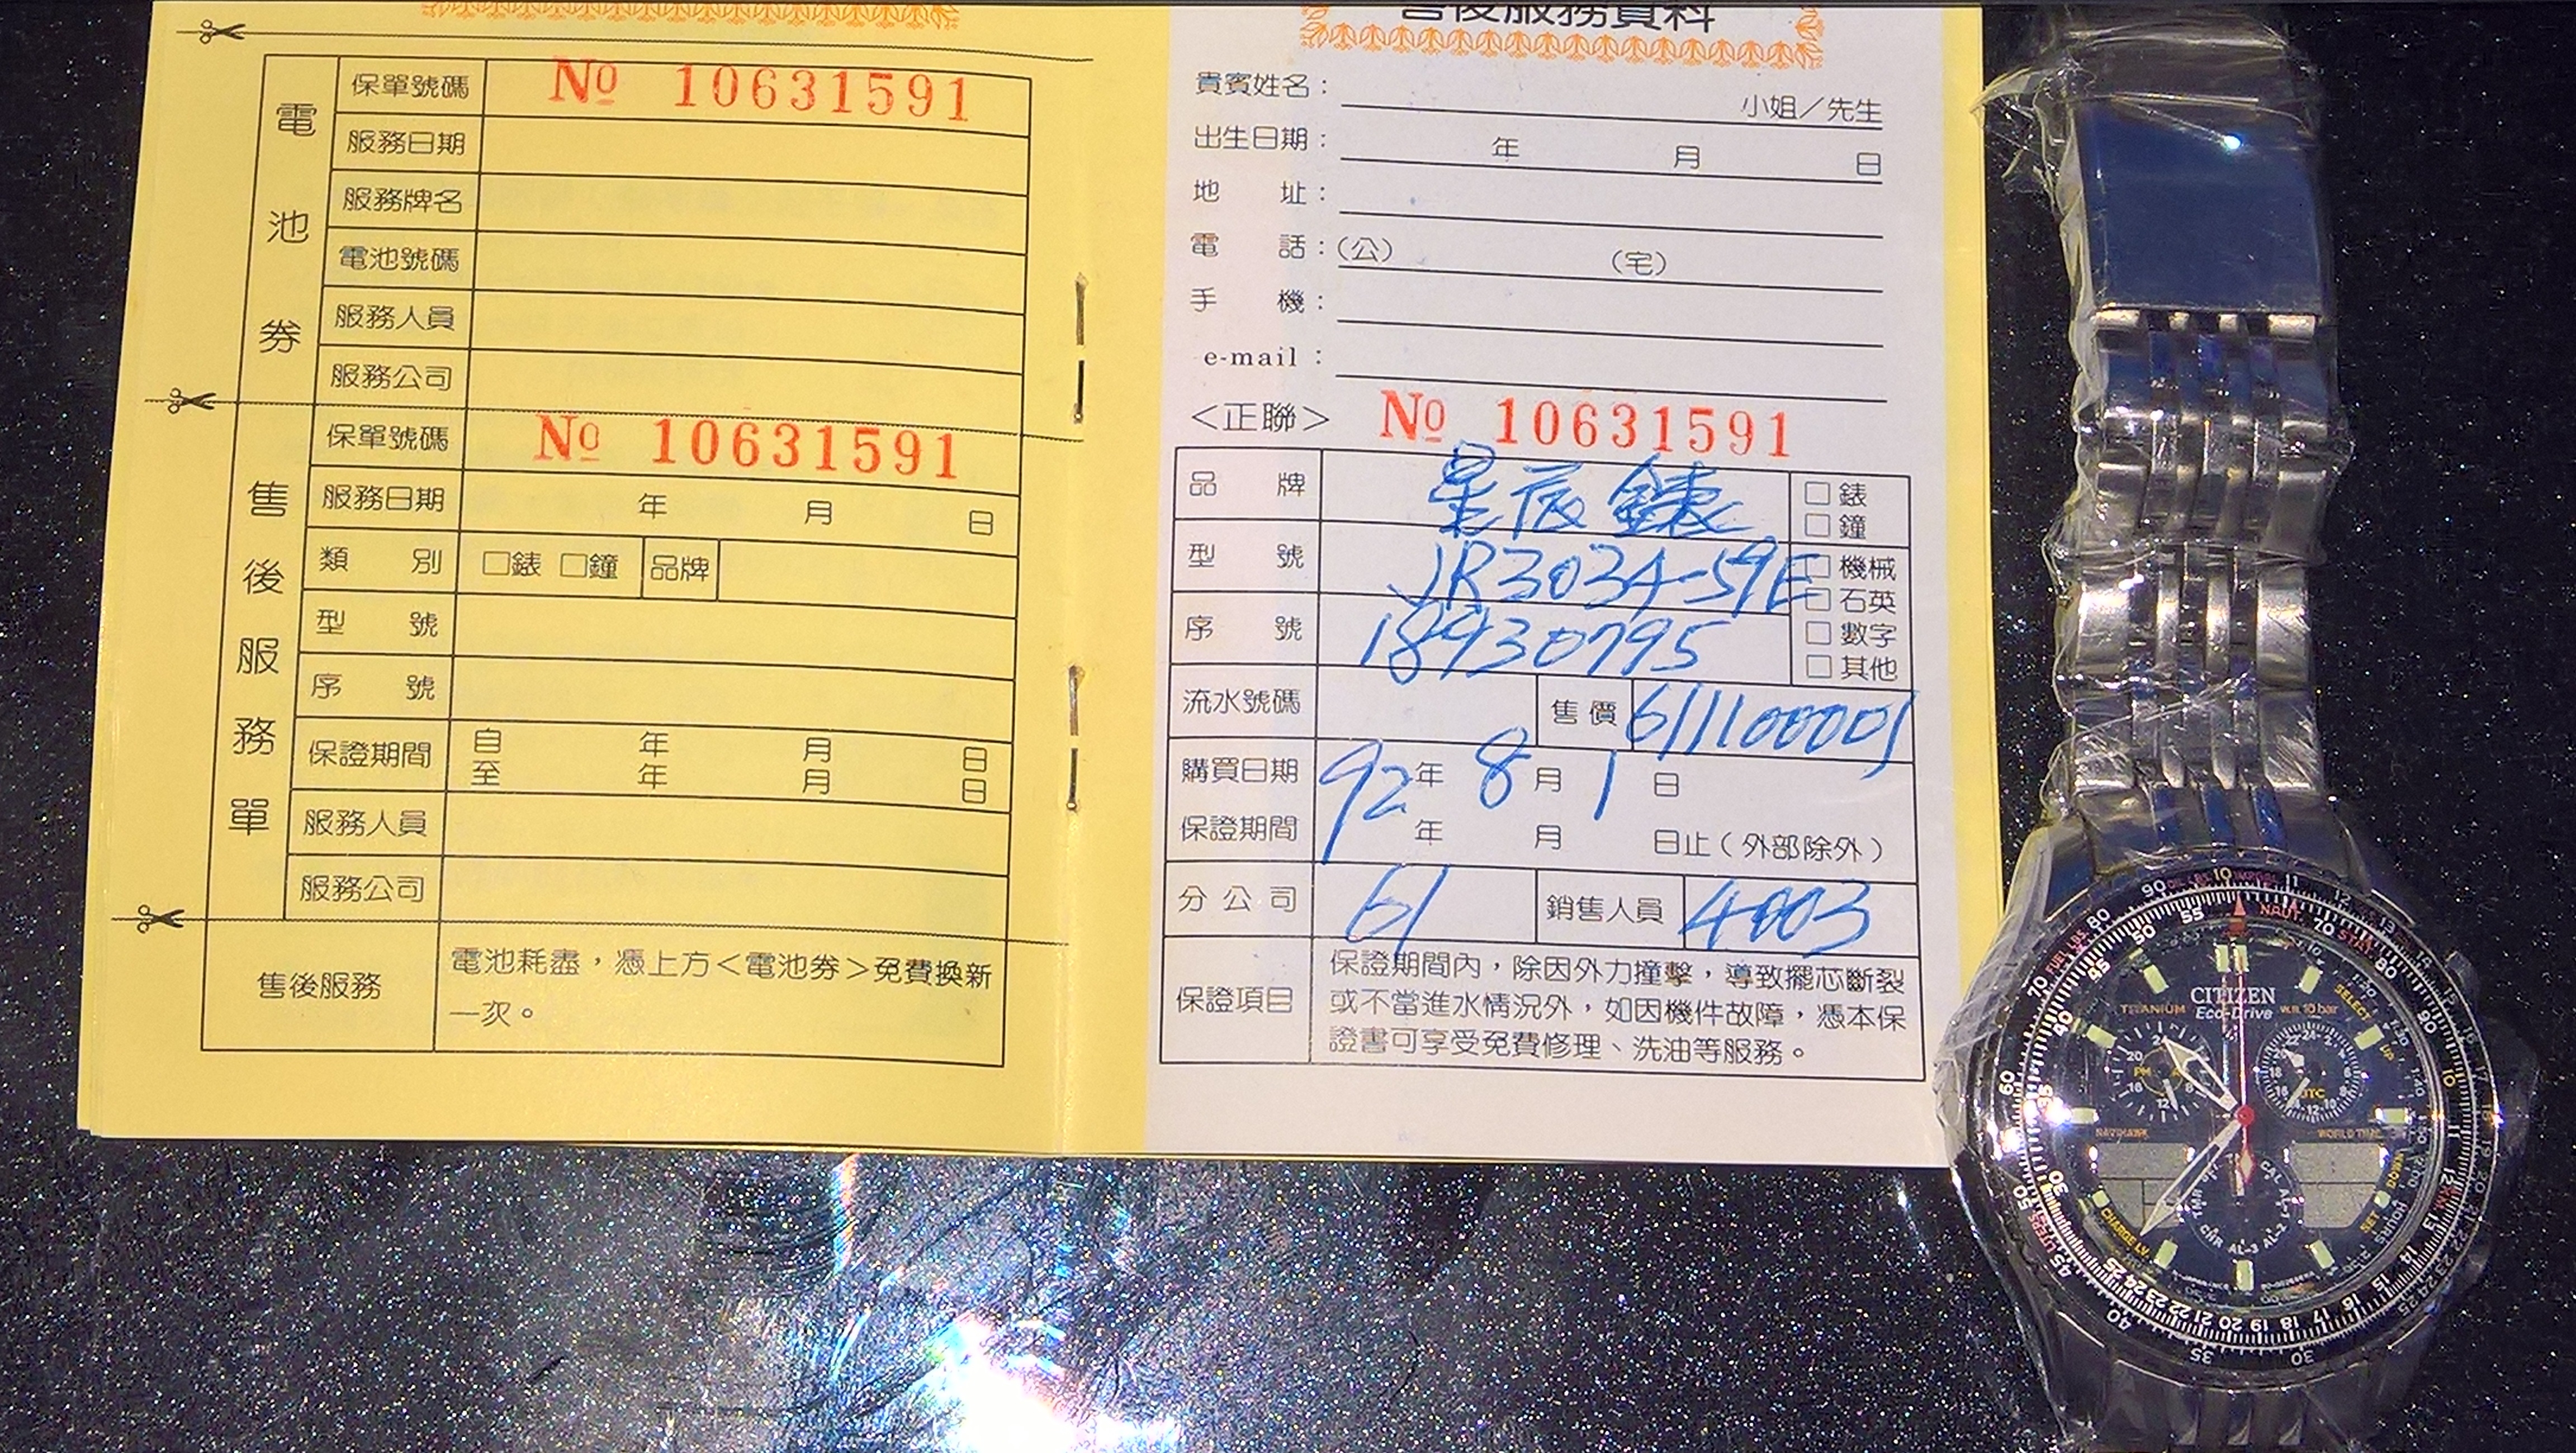 電池券
保單號碼 No 10631591
服務日期
服務牌名
電池號碼
服務人員
服務公司
售後服務單
保單號碼 No 10631591
服務日期 年 月 日
類別 □錶 □鐘 品牌
型號
序號
保證期間 自 年 月 日
至 年 月 日
服務人員
服務公司
售後服務 電池耗盡，憑上方＜電池券＞免費換新
一次。
售後服務資料
貴賓姓名： 小姐／先生
出生日期： 年 月 日
地址：
電話：(公) (宅)
手機：
e-mail：
＜正聯＞ No 10631591
品牌 星辰錶 □錶
□鐘
型號 JR3034-59E □機械
□石英
序號 18930795 □數字
□其他
流水號碼 售價
購買日期 92年 8月 1日
保證期間 年 月 日止（外部除外）
分公司 61 銷售人員 4003
保證項目 保證期間內，除因外力撞擊，導致擺芯斷裂
或不當進水情況外，如因機件故障，憑本保
證書可享受免費修理、洗油等服務。
CITIZEN
Eco-Drive
TITANIUM W.R.10bar
SELECT
NAVIHAWK WORLD TIME
UTC
CHARGE LV
SET
CHR AL-3 AL-2